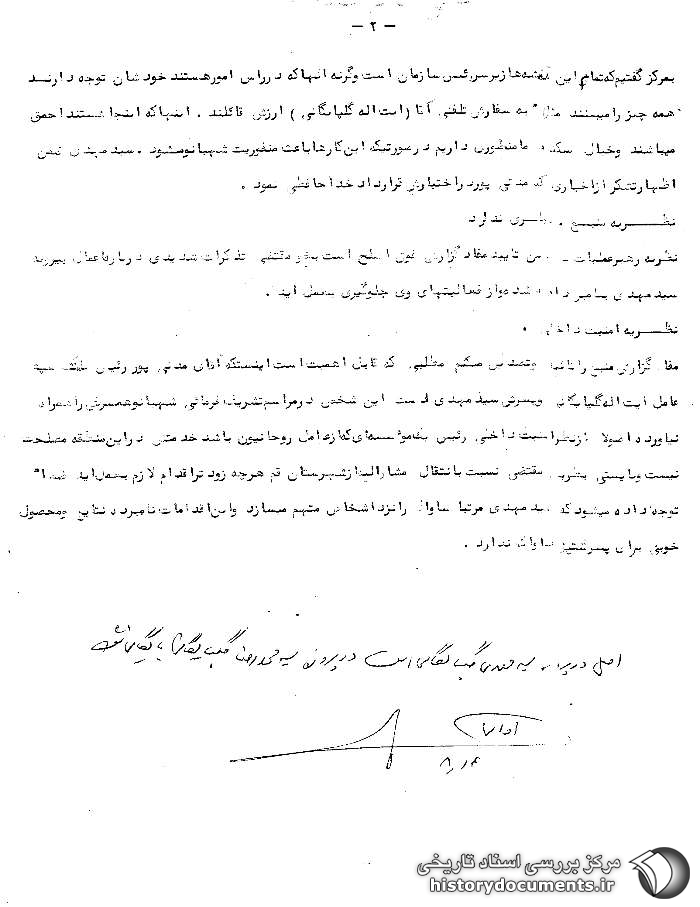 - ۲ -
بمرکز گفتیم که تمام این نقشه‌ها زیر سر رئیس سازمان است وگرنه آنها که در راس امور هستند خودشان توجه دارند
همه چیز را میبینند مثلا" به سفارش تلفنی آقا (ایت اله گلپایگانی) ارزش قائلند . اینها که اینجا هستند احمق
میباشند وخیال میکنند ما منظوری داریم در صورتیکه این کارها باعث منفوریت شهبانو میشود . سید مهدی ضمن
اظهار تشکر از اخباری که مدنی پور در اختیارش قرار داد خداحافظی نمود .
نظریه منبع . نظری ندارد
نظریه رهبر عملیات - ضمن تایید مفاد گزارش فوق اصلح است مقتضی تذکرات شدیدی درباره اعمال بیرویه
سید مهدی بنامبرده داده شده و از فعالیتهای وی جلوگیری بعمل آید .
نظریه امنیت داخلی .
مفاد گزارش منبع را تایید وتصدیق میکنم مطلبی که قابل اهمیت است اینستکه آقای مدنی پور رئیس
عامل ایت اله گلپایگانی وپسرش سید مهدی است این شخص در مراسم تشریف فرمائی شهبانو همسرش را همراه
نیاورد اصولا از نظر امنیت داخلی رئیس که از عوامل روحانیون باشد خدمتش در این منطقه مصلحت
نیست وبایستی بطریق مقتضی نسبت بانتقال مشارالیه از شهرستان قم هرچه زودتر اقدام لازم بعمل آید ضمنا"
توجه داده میشود که سید مهدی مرتبا ساواک را نزد اشخاص متهم میسازد واین اقدامات نامبرده نتایج ومحصول
خوبی برای پرستیژ ساواک ندارد .
اصل در پرونده سید مهدی گلپایگانی است در پرونده سید محمدرضا گلپایگانی بایگانی شود
۸٫۲۴
مرکز بررسی اسناد تاریخی
historydocuments.ir